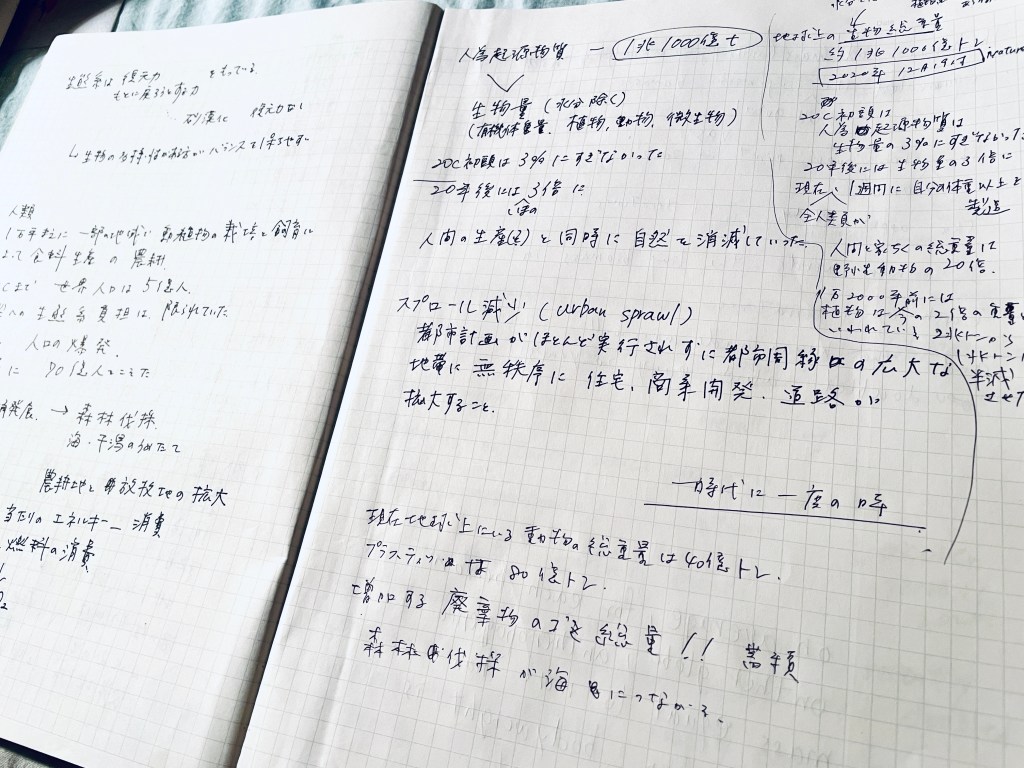 生態系は 復元力 をもっている
もとに戻ろうとする力
砂漠化 復元力なし
人類
1万年まえに 一部の地域に 動植物の 栽培と 飼育に
食料生産 の 農耕
世界人口は 5億人
生態系負担は、限られていた
人口の爆発
に 80億人をこえた
→ 森林伐採
海・干潟のうめたて
農耕地と 放牧地の 拡大
当たりの エネルギー 消費
燃料の消費
人為起源物質 — 1兆1000億t
生物量 (水分除く)
(有機体質量、植物、動物、微生物)
20C初頭は 3%にすぎなかった
20年後には 3倍に
人間の生産 と 同時に 自然を消滅していった
スプロール減少 (urban sprawl)
都市計画がほとんど実行されずに都市周縁の広大な
地帯に 無秩序に 住宅、商業開発、道路が
拡大すること。
一時代に 一度の時
現在地球上にいる 動物の総重量は 40億トン.
プラスティックは 80億トン.
増加する 廃棄物の 総量!! 蓄積
森林の伐採 が海 につながる.
地球上の 生物総重量
約1兆1000億トン
2020年 12月19付 nature
20C初頭は
人為起源物質は
生物量の3%にすぎなかった
20年後には 生物量の3倍に
現在、1週間に 自分の体重以上を
製造
全人類が
人間と家ちくの総重量は
野生動物の20倍.
1万2000年前には
植物は今の2倍の質量
いわれている 2兆トンから
1兆トンに
半減
させた